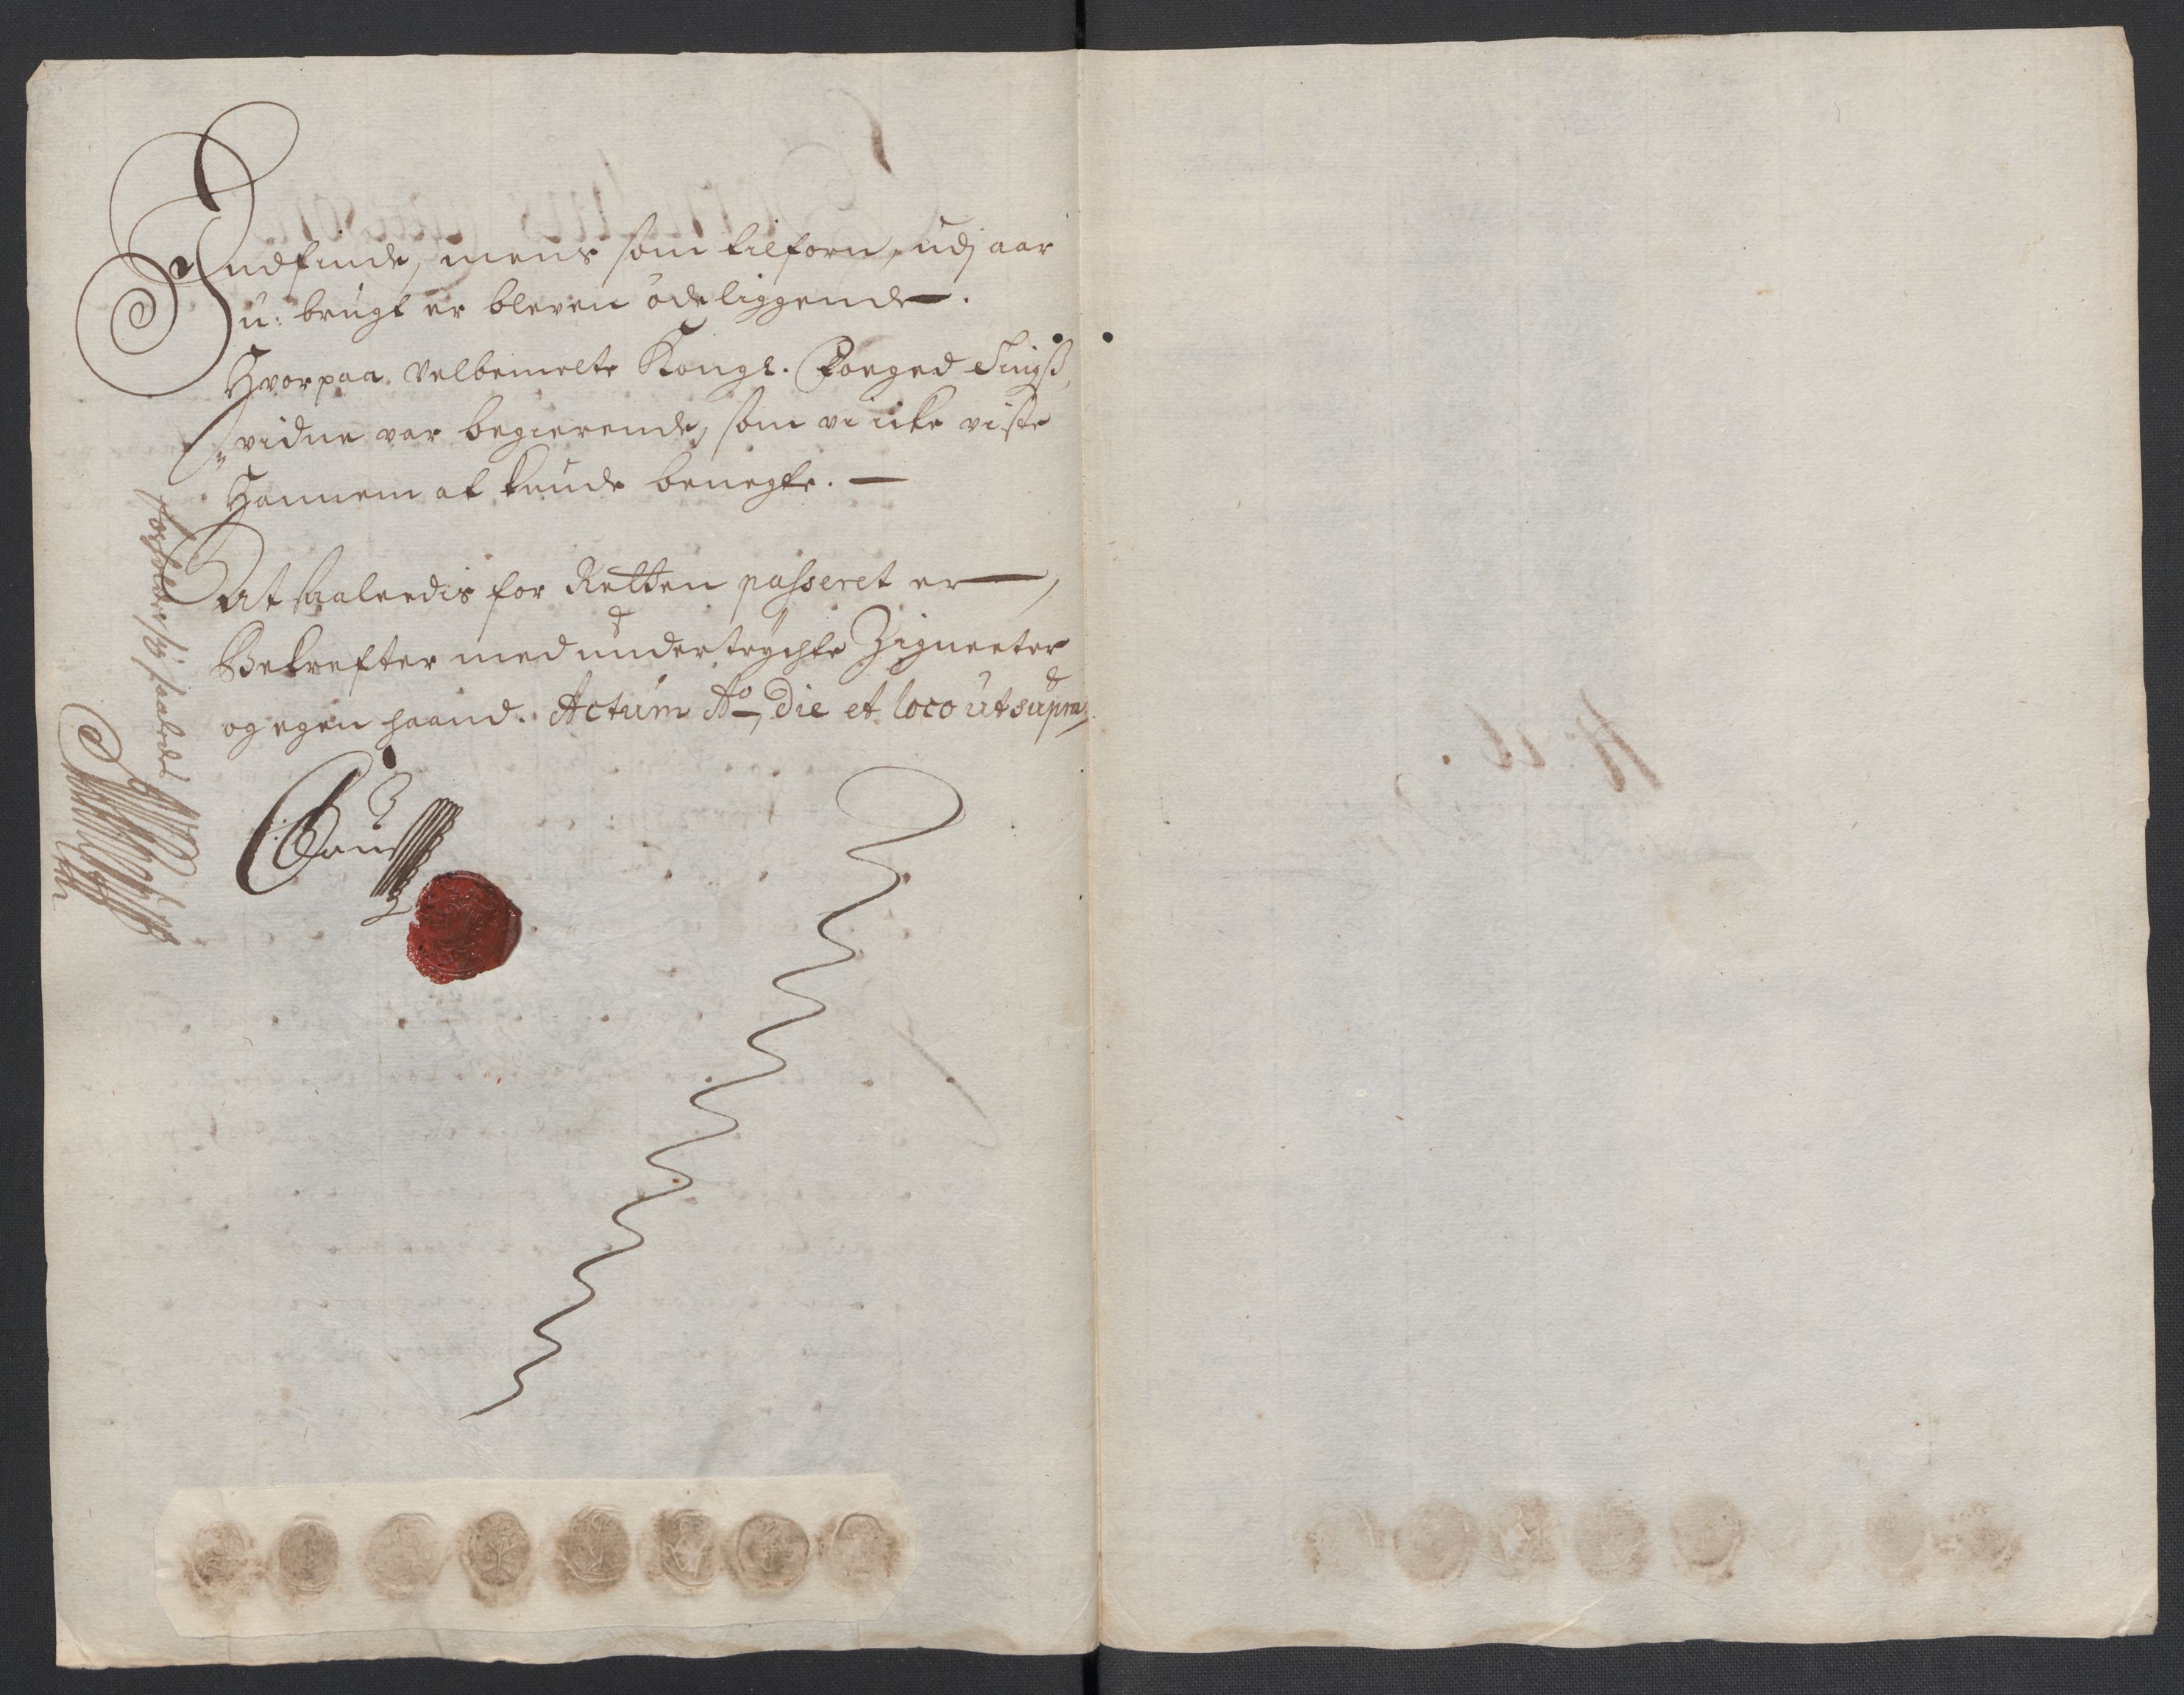 Indfinde, mens som tilforn, udj aar
u: brugt er bleven øde liggende.
Hvorpaa Velbemelte Kongl. Foeged Tingß,
vidne var begierende, som vi icke viste
Hannem at kunde benegte.
At saaleedis for Retten passeret er,
Bekrefter med undertrychte Zigneeter
og egen haand. Actum Ao Die et loco ut supra.
forholder sig saaledes